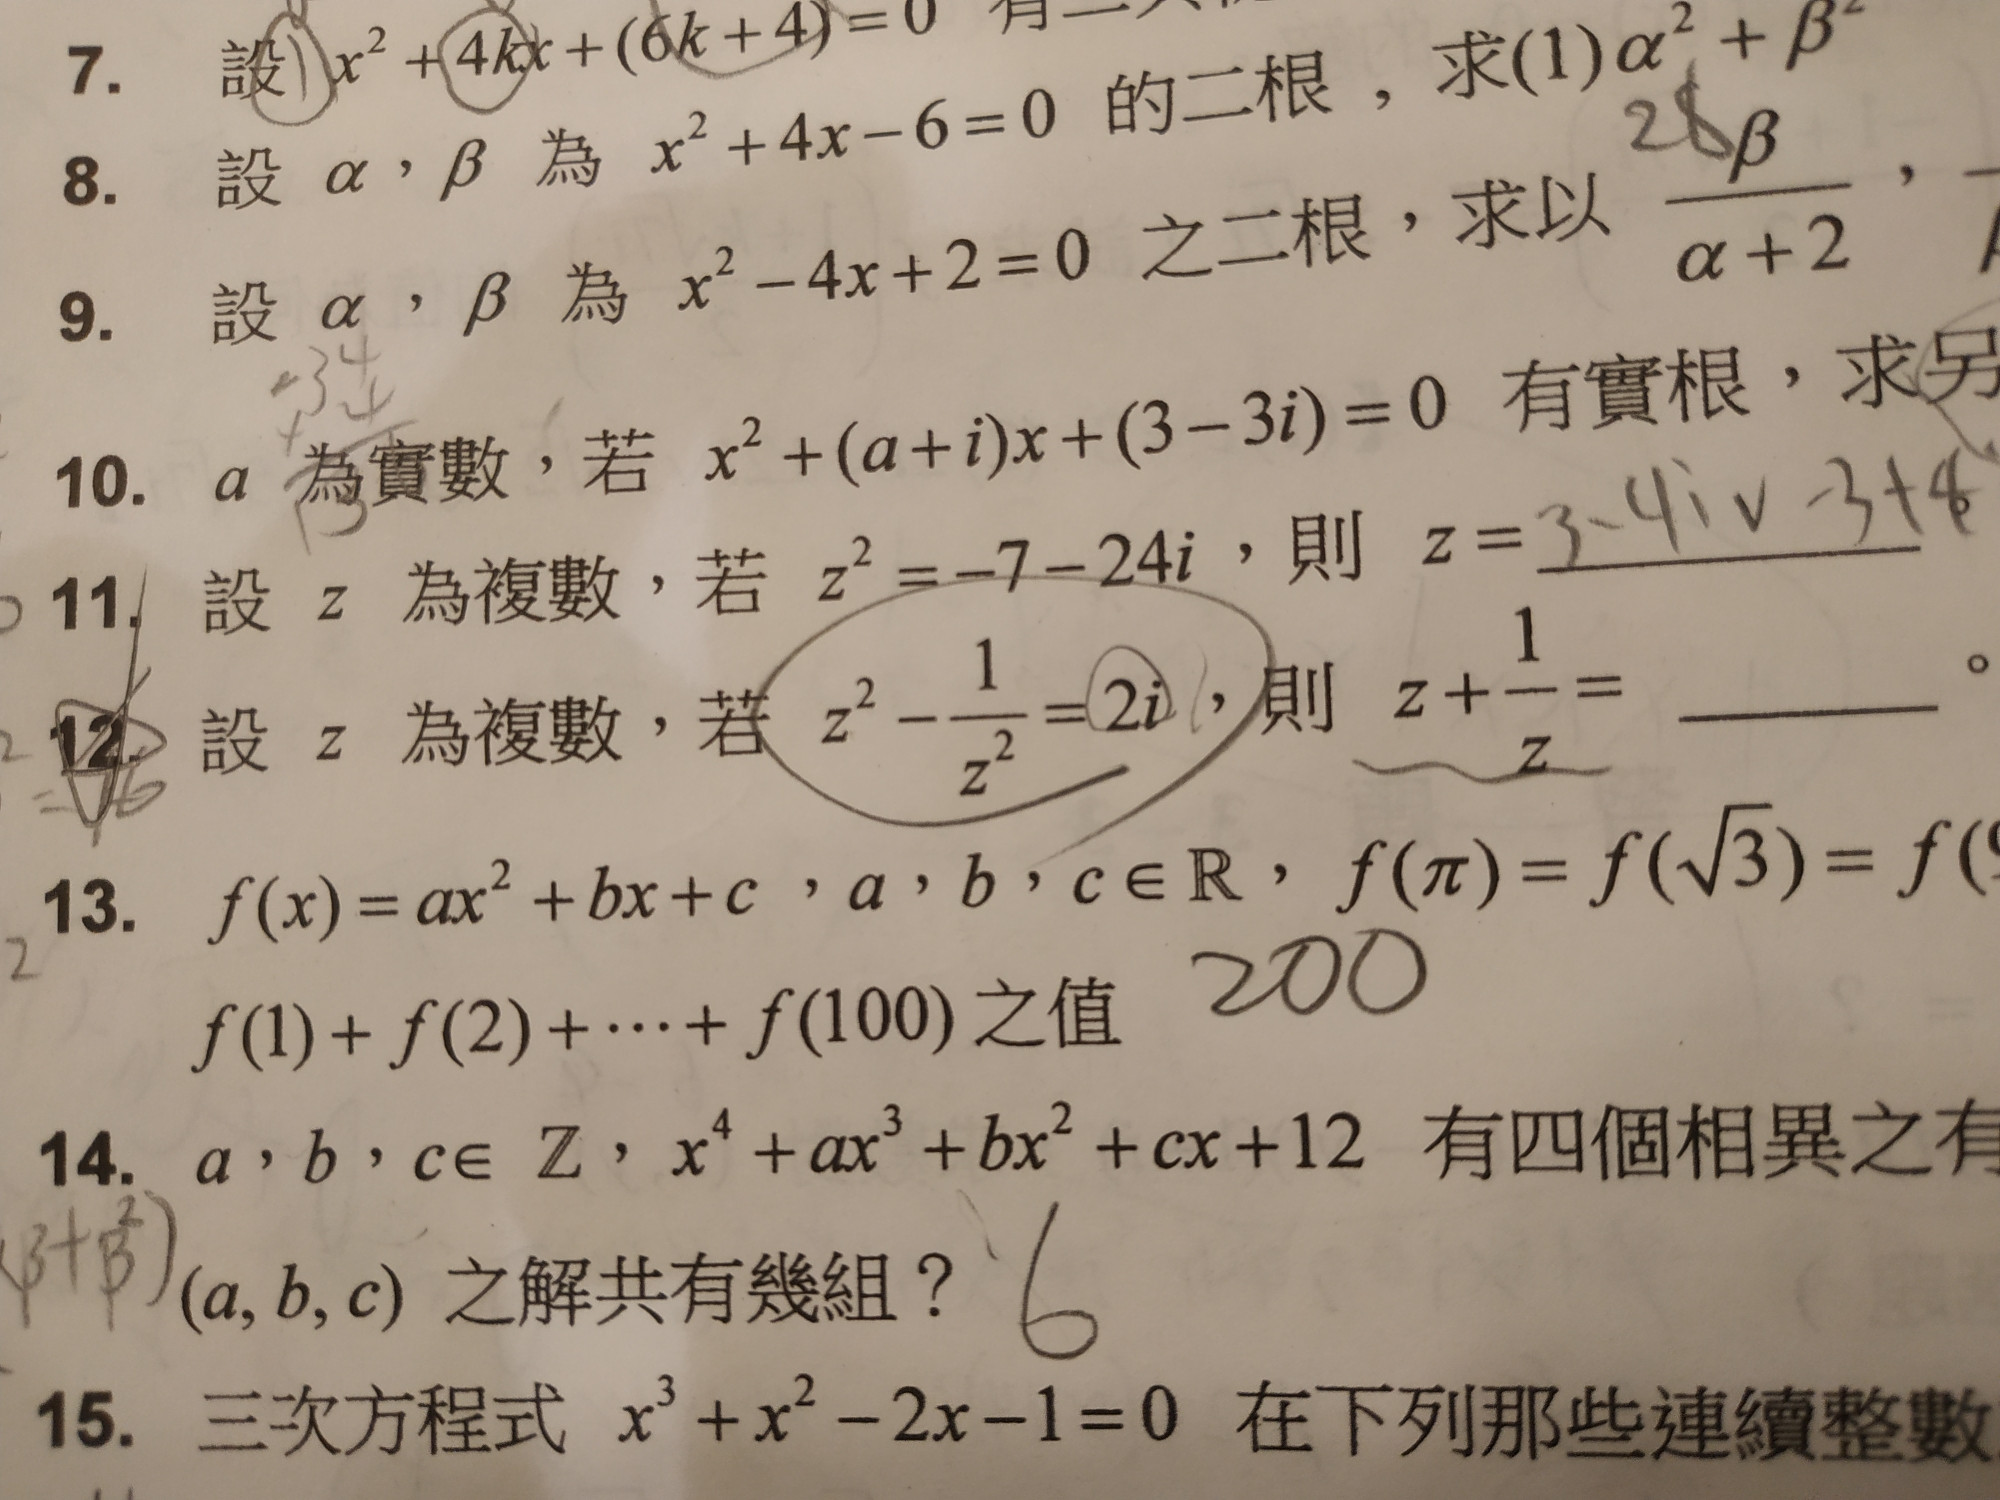 7. 設 x² + 4kx + (6k + 4) = 0 有二
8. 設 α，β 為 x² + 4x − 6 = 0 的二根，求(1) α² + β²
28
9. 設 α，β 為 x² − 4x + 2 = 0 之二根，求以 β/(α + 2)，
10. a 為實數，若 x² + (a + i)x + (3 − 3i) = 0 有實根，求另
11. 設 z 為複數，若 z² = −7 − 24i，則 z = 3-4i v -3+4
12. 設 z 為複數，若 z² − 1/z² = 2i，則 z + 1/z = ______。
13. f(x) = ax² + bx + c，a，b，c ∈ ℝ，f(π) = f(√3) = f(
f(1) + f(2) + ⋯ + f(100) 之值 200
14. a，b，c ∈ ℤ，x⁴ + ax³ + bx² + cx + 12 有四個相異之有
(a, b, c) 之解共有幾組？ 6
15. 三次方程式 x³ + x² − 2x − 1 = 0 在下列那些連續整數